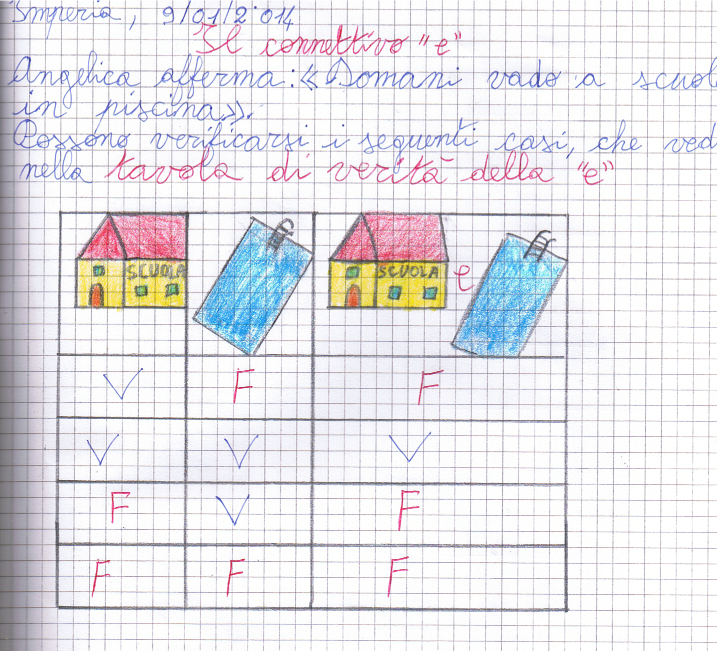 Imperia, 9/01/2014
Il connettivo "e"
Angelica afferma: «Domani vado a scuol
in piscina».
Possono verificarsi i seguenti casi, che ved
nella tavola di verità della "e"
SCUOLA SCUOLA e
V F F
V V V
F V F
F F F